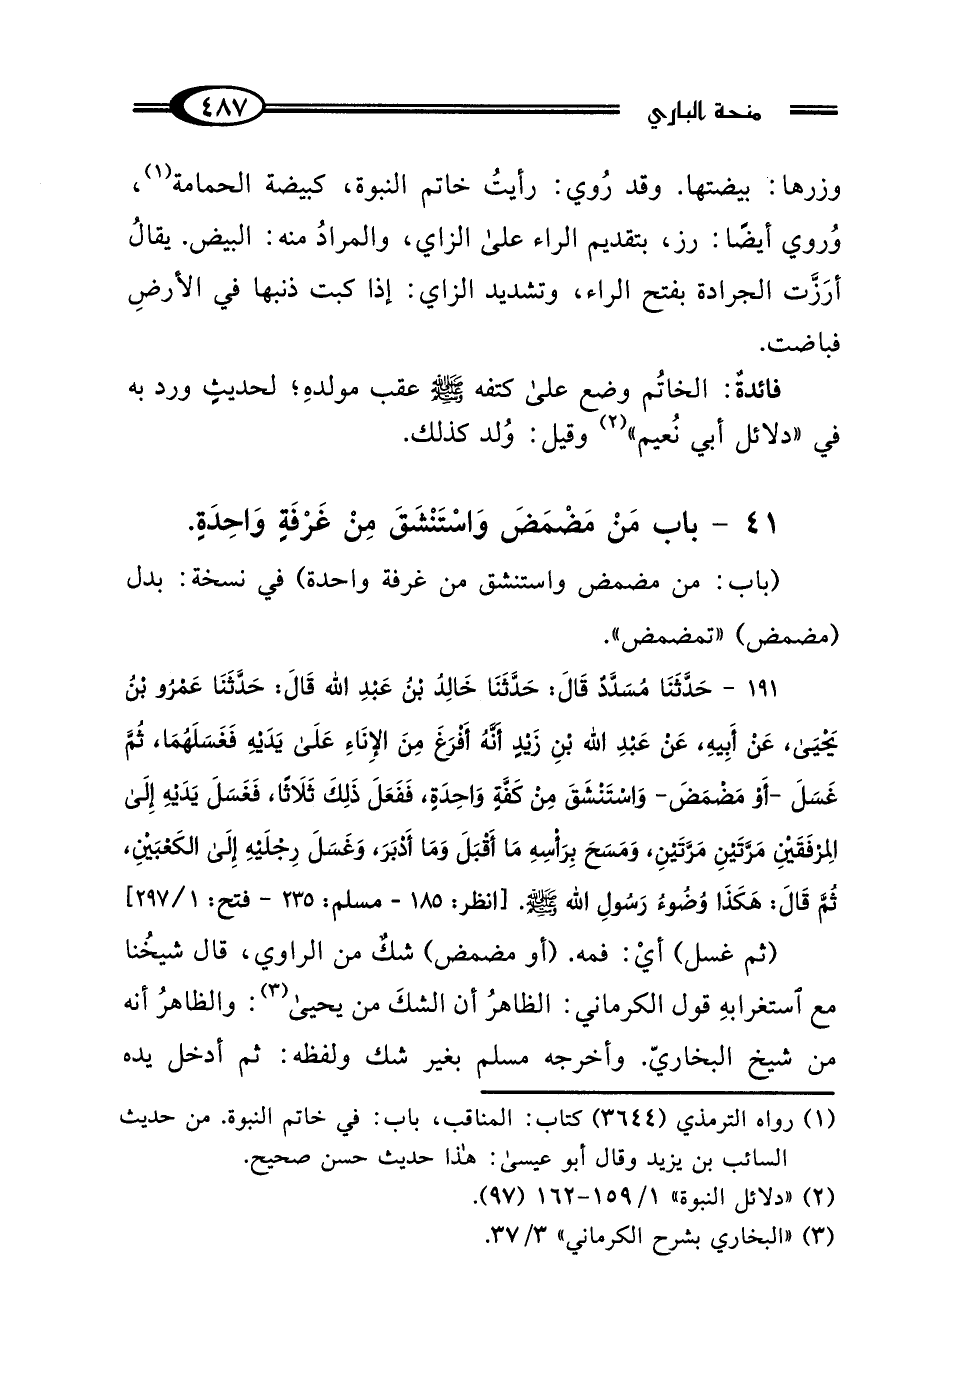 منحة الباري ٤٨٧
وزرها: بيضتها. وقد رُوي: رأيتُ خاتم النبوة، كبيضة الحمامة(١)،
وُروي أيضًا: رز، بتقديم الراء علىٰ الزاي، والمرادُ منه: البيض. يقالُ
أرَزَّت الجرادة بفتح الراء، وتشديد الزاي: إذا كبت ذنبها في الأرضِ
فباضت.
فائدةٌ: الخاتُم وضع علىٰ كتفه ﷺ عقب مولدهِ؛ لحديثٍ ورد به
في «دلائل أبي نُعيم»(٢) وقيل: وُلد كذلك.
٤١ - باب مَنْ مَضْمَضَ وَاسْتَنْشَقَ مِنْ غَرْفَةٍ وَاحِدَةٍ.
(باب: من مضمض واستنشق من غرفة واحدة) في نسخة: بدل
(مضمض) «تمضمض».
١٩١ - حَدَّثَنَا مُسَدَّدٌ قَالَ: حَدَّثَنَا خَالِدُ بْنُ عَبْدِ الله قَالَ: حَدَّثَنَا عَمْرُو بْنُ
يَحْيَىٰ، عَنْ أَبِيهِ، عَنْ عَبْدِ الله بْنِ زَيْدٍ أَنَّهُ أَفْرَغَ مِنَ الإِنَاءِ عَلَىٰ يَدَيْهِ فَغَسَلَهُمَا، ثُمَّ
غَسَلَ -أَوْ مَضْمَضَ- وَاسْتَنْشَقَ مِنْ كَفَّةٍ وَاحِدَةٍ، فَفَعَلَ ذَلِكَ ثَلَاثًا، فَغَسَلَ يَدَيْهِ إِلَىٰ
المِرْفَقَيْنِ مَرَّتَيْنِ مَرَّتَيْنِ، وَمَسَحَ بِرَأْسِهِ مَا أَقْبَلَ وَمَا أَدْبَرَ، وَغَسَلَ رِجْلَيْهِ إِلَىٰ الكَعْبَيْنِ،
ثُمَّ قَالَ: هَكَذَا وُضُوءُ رَسُولِ الله ﷺ. [انظر: ١٨٥ - مسلم: ٢٣٥ - فتح: ١/ ٢٩٧]
(ثم غسل) أيْ: فمه. (أو مضمض) شكٌ من الراوي، قال شيخُنا
مع ٱستغرابهِ قول الكرماني: الظاهرُ أن الشكَ من يحيىٰ(٣): والظاهرُ أنه
من شيخ البخاريّ. وأخرجه مسلم بغير شك ولفظه: ثم أدخل يده
(١) رواه الترمذي (٣٦٤٤) كتاب: المناقب، باب: في خاتم النبوة. من حديث
السائب بن يزيد وقال أبو عيسىٰ: هٰذا حديث حسن صحيح.
(٢) «دلائل النبوة» ١/ ١٥٩-١٦٢ (٩٧).
(٣) «البخاري بشرح الكرماني» ٣/ ٣٧.